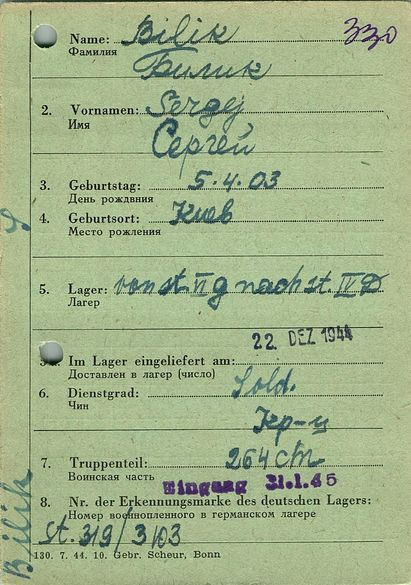 330
Name: Bilik
Фамилия Билик
2. Vornamen: Sergej
Имя Сергей
3. Geburtstag: 5.4.03
День рождвния
4. Geburtsort: Киев
Место рождения
5. Lager: von st. VI g nach st. IV D
Лагер
22. DEZ. 1944
Im Lager eingeliefert am:
Доставлен в лагер (число)
6. Dienstgrad: Sold.
Чин Кр-ц
7. Truppenteil: 264 сп
Воинская часть
Eingang 31.1.45
8. Nr. der Erkennungsmarke des deutschen Lagers:
Номер военнопленного в германском лагере
St. 319/3103
130. 7. 44. 10. Gebr. Scheur, Bonn
Bilik